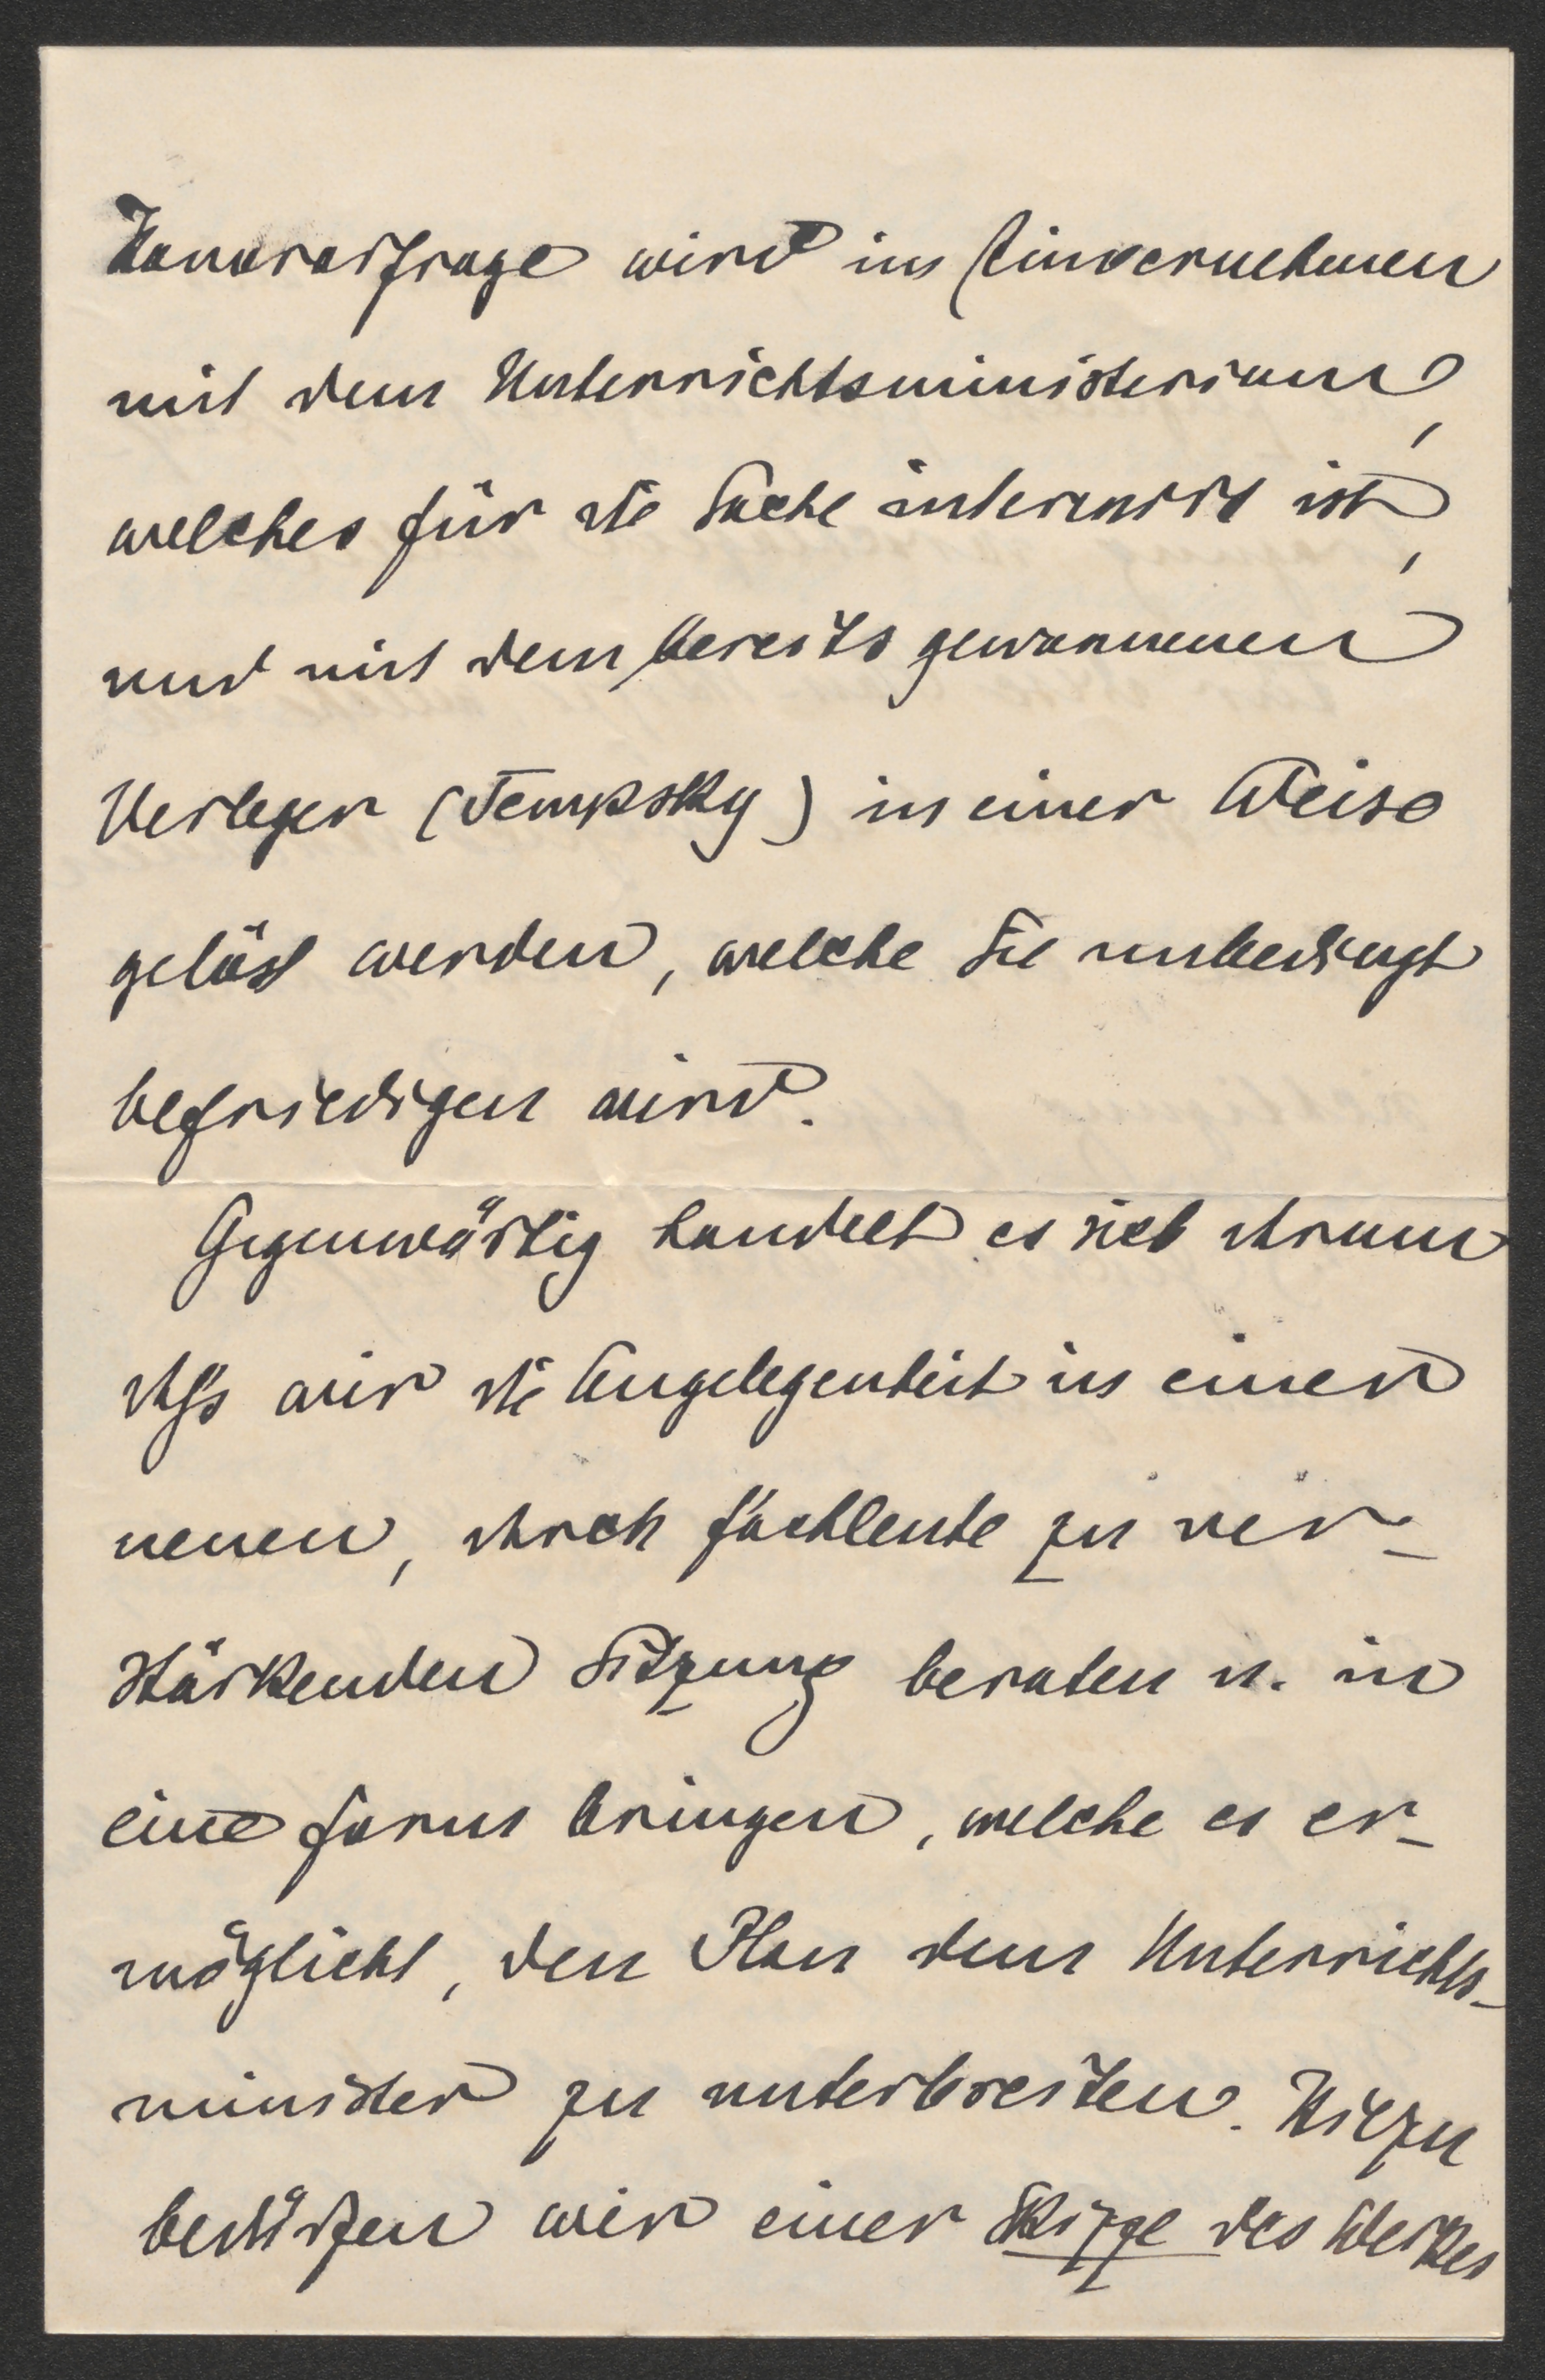 Honorarfrage wird im Einvernehmen
mit dem Unterrichtsministerium,
welches für die Sache interessirt ist,
und mit dem bereits gewonnenen
Verleger (Tempsky) in einer Weise
gelöst werden, welche Sie unbedingt
befriedigen wird.
Gegenwärtig handelt es sich darum
daß wir die Angelegenheit in einer
neuen, durch Fachleute zu ver-
stärkenden Sitzung beraten u. in
eine Form bringen, welche es er-
möglicht, den Plan dem Unterrichts-
minister zu unterbreiten. Hiezu
bedürfen wir einer Skizze des Werkes